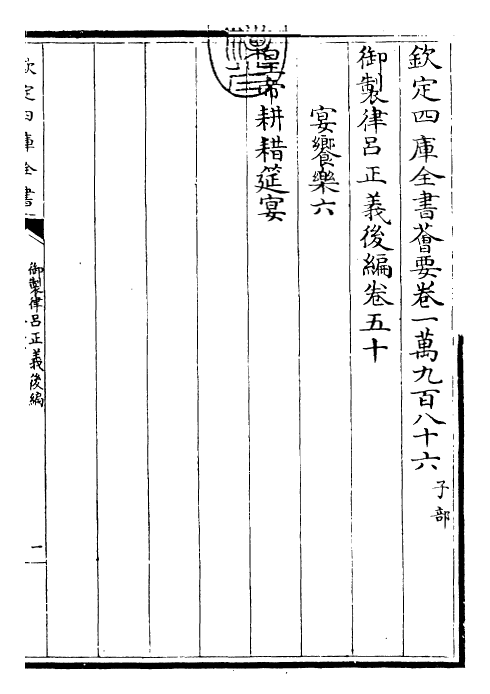 欽定四庫全書薈要卷一萬九百八十六 子部
御製律呂正義後編卷五十
宴饗樂六
皇帝耕耤筵宴
欽定四庫全書
御製律呂正義後編
一